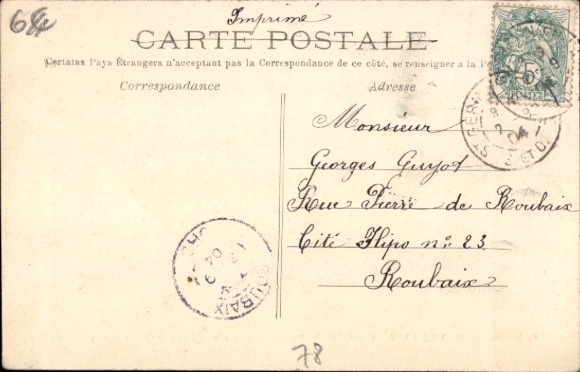 64
Imprimé
CARTE POSTALE
Certains Pays Étrangers n'acceptant pas la Correspondance de ce côté, se renseigner à la Po
Correspondance
Adresse
5c
POSTES
04
Monsieur
Georges Guyot
Rue Pierre de Roubaix
Cité Flips nº 23
Roubaix
ROUBAIX
78